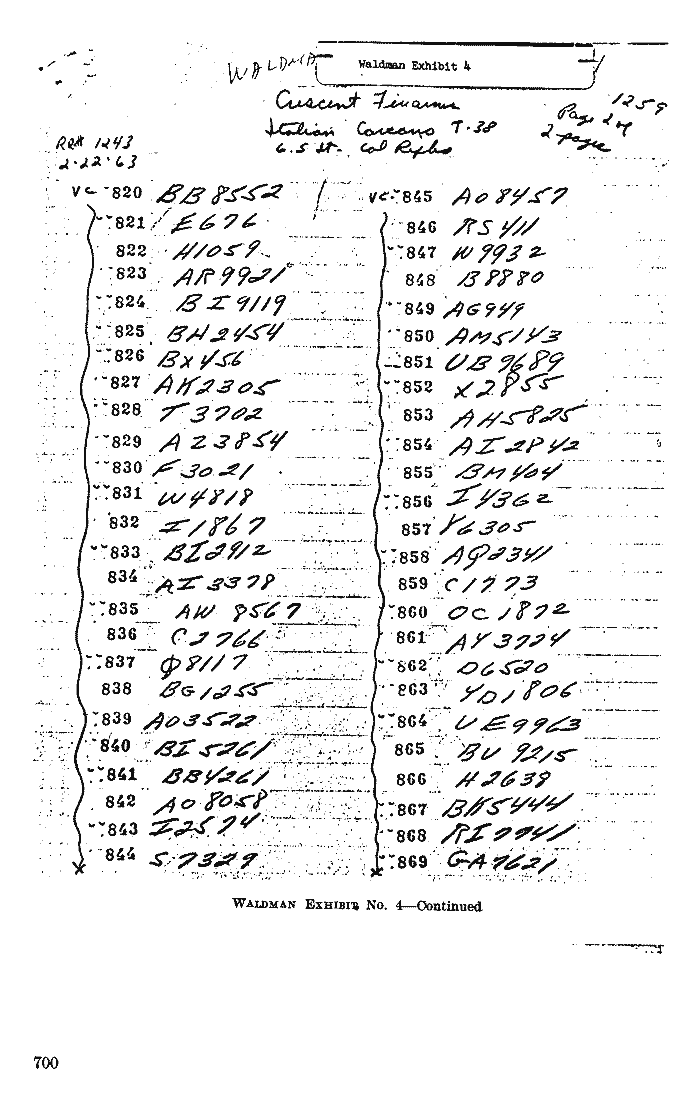 WALDMAN
Waldman Exhibit 4
4
Crescent Firearms
1259
Italian Carcano T-38
Page 2 of
2 pages
6.5 It. Cal Rifles
RR# 1243
2-22-63
VC 820 BB8552
821 E676
822 H1059
823 AR9921
824 BI9119
825 BH2454
826 BX456
827 AK2305
828 T3702
829 AZ3854
830 F3021
831 W4818
832 I1867
833 BI2912
834 AI3378
835 AW 8567
836 C2766
837 Q8117
838 BG1255
839 AO3522
840 BI5261
841 BB4261
842 AO8058
843 I2574
844 S7329
VC 845 AO8457
846 RS411
847 W9932
848 B8880
849 AG949
850 AM5143
851 UB9689
852 X2855
853 AH5825
854 AI2842
855 BM404
856 I4362
857 Y6305
858 AQ2341
859 C1773
860 OC1872
861 AY3724
862 D6520
863 YD1806
864 UE9963
865 BU 9215
866 H2639
867 BK5444
868 RI7741
869 GA7621
WALDMAN EXHIBIT NO. 4—Continued
700